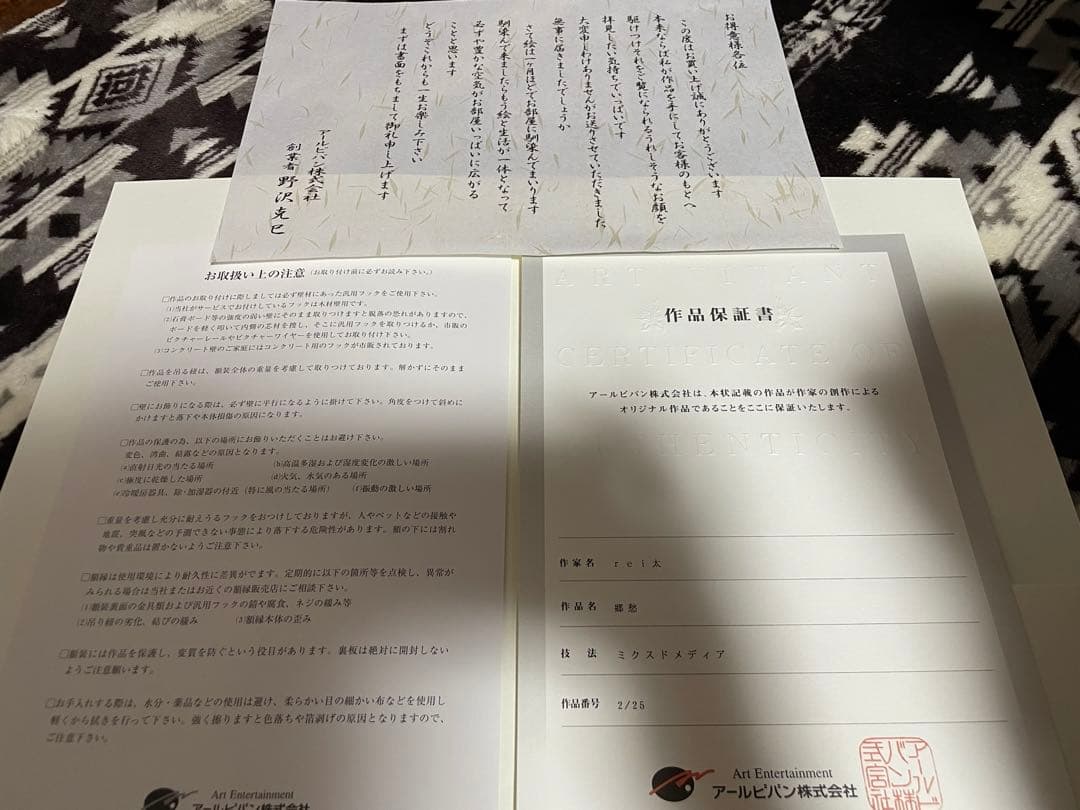 お得意様各位
この度はお買い上げ誠にありがとうございます
本来ならば私が作品を手にしてお客様のもとへ
駆けつけそれをご覧になられるうれしそうなお顔を
拝見したい気持ちでいっぱいです
大変申しわけありませんがお送りさせていただきました
無事に届きましたでしょうか
さて絵は一ヶ月ほどでお部屋に馴染んでまいります
馴染んで来ましたらもう絵と生活が一体となって
必ずや豊かな空気がお部屋いっぱいに広がる
ことと思います
どうぞこれからも一生お楽しみ下さい
まずは書面をもちまして御礼申し上げます
アールビバン株式会社
創業者 野沢克巳
お取扱い上の注意(お取り付け前に必ずお読み下さい。)
□作品のお取り付けに際しましては必ず壁材にあった汎用フックをご使用下さい。
(1)当社がサービスでお付けしているフックは木材壁用です。
(2)石膏ボード等の強度の弱い壁にそのまま取りつけますと脱落の恐れがありますので、
ボードを軽く叩いて内側の芯材を捜し、そこに汎用フックを取りつけるか、市販の
ピクチャーレールやピクチャーワイヤーを使用してお取り付け下さい。
(3)コンクリート壁のご家庭にはコンクリート用のフックが市販されております。
□作品を吊る紐は、額装全体の重量を考慮して取りつけております。解かずにそのまま
ご使用下さい。
□壁にお飾りになる際は、必ず壁に平行になるように掛けて下さい。角度をつけて斜めに
かけますと落下や本体損傷の原因になります。
□作品の保護の為、以下の場所にお飾りいただくことはお避け下さい。
変色、湾曲、結露などの原因となります。
(a)直射日光の当たる場所 (b)高温多湿および湿度変化の激しい場所
(c)極度に乾燥した場所 (d)火気、水気のある場所
(e)冷暖房器具、除・加湿器の付近(特に風の当たる場所) (f)振動の激しい場所
□重量を考慮し充分に耐えうるフックをおつけしておりますが、人やペットなどの接触や
地震、突風などの予測できない事態により落下する危険性があります。額の下には割れ
物や貴重品は置かないようご注意下さい。
□額縁は使用環境により耐久性に差異がでます。定期的に以下の箇所等を点検し、異常が
みられる場合は当社またはお近くの額縁販売店にご相談下さい。
(1)額装裏面の金具類および汎用フックの錆や腐食、ネジの緩み等
(2)吊り紐の劣化、結びの緩み (3)額縁本体の歪み
□額装には作品を保護し、変質を防ぐという役目があります。裏板は絶対に開封しない
ようご注意願います。
□お手入れする際は、水分・薬品などの使用は避け、柔らかい目の細かい布などを使用し
軽くから拭きを行って下さい。強く擦りますと色落ちや箔剥げの原因となりますので、
ご注意下さい。
Art Entertainment
アールビバン株式会社
ART VIVANT
作品保証書
CERTIFICATE OF
アールビバン株式会社は、本状記載の作品が作家の創作による
オリジナル作品であることをここに保証いたします。
作家名 rei太
作品名 郷愁
技法 ミクスドメディア
作品番号 2/25
Art Entertainment
アールビバン株式会社
アールビバン株式会社